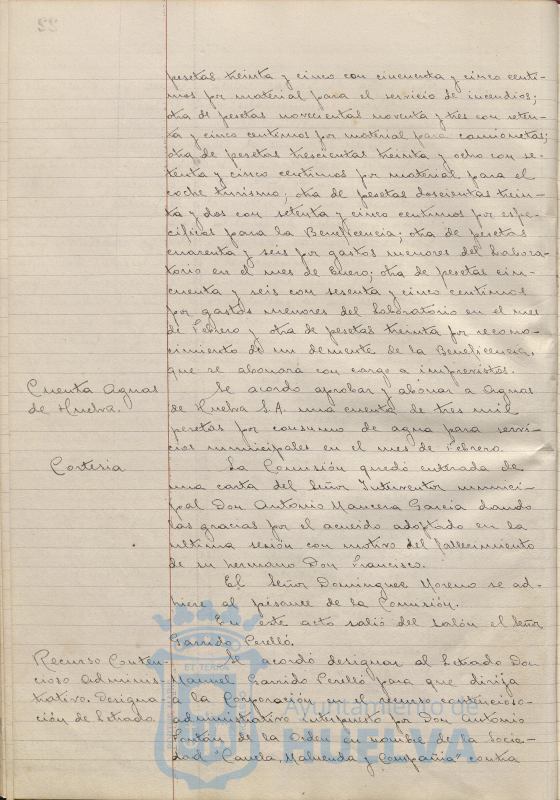 pesetas treinta y cinco con cincuenta y cinco centi-
mos por material para el servicio de incendios;
otra de pesetas novecientas noventa y tres con seten-
ta y cinco centimos por material para camionetas;
otra de pesetas trescientas treinta y ocho con se-
tenta y cinco centimos por material para el
coche turismo; otra de pesetas doscientas trein-
ta y dos con setenta y cinco centimos por espe-
cificos para la Beneficencia; otra de pesetas
cuarenta y seis por gastos menores del Labora-
torio en el mes de Enero; otra de pesetas cin-
cuenta y seis con sesenta y cinco centimos
por gastos menores del Laboratorio en el mes
de Febrero y otra de pesetas treinta por recono-
cimiento de un demente de la Beneficencia,
que se abonará con cargo a imprevistos.
Cuenta Aguas
de Huelva.
Se acordó aprobar y abonar a Aguas
de Huelva S.A. una cuenta de tres mil
pesetas por consumo de agua para servi-
cios municipales en el mes de Febrero.
Cortesia
La Comisión quedó enterada de
una carta del Señor Interventor munici-
pal Don Antonio Mancera Garcia dando
las gracias por el acuerdo adoptado en la
ultima sesión con motivo del fallecimiento
de su hermano Don Francisco.
El Señor Dominguez Moreno se ad-
hiere al pesame de la Comisión.
En este acto salió del salón el Señor
Garrido Perelló.
Recurso Conten-
cioso Adminis-
trativo. Designa-
ción de Letrado.
Se acordó designar al Letrado Don
Manuel Garrido Perelló para que dirija
a la Corporación en el recurso contencioso-
administrativo interpuesto por Don Antonio
de la Orden en nombre de la Socie-
dad "Canela, y Compañia" contra
Ayuntamiento de
HUELVA